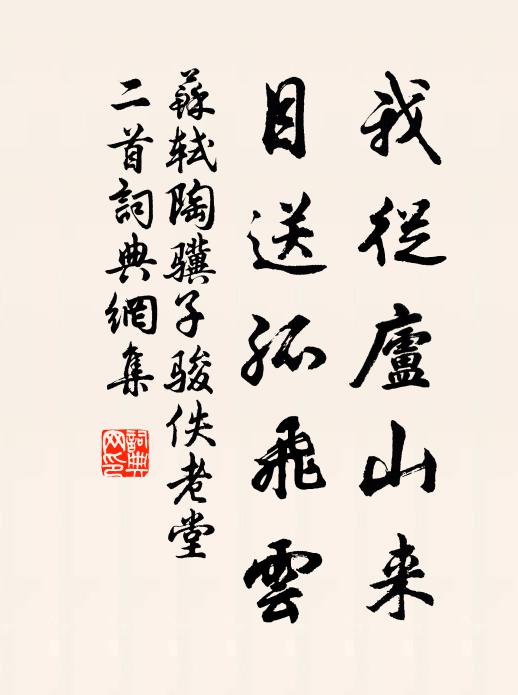 我從廬山来
目送孤飛雲
蘇轼陶骥子骏佚老堂
二首詞典網集
詞典網印